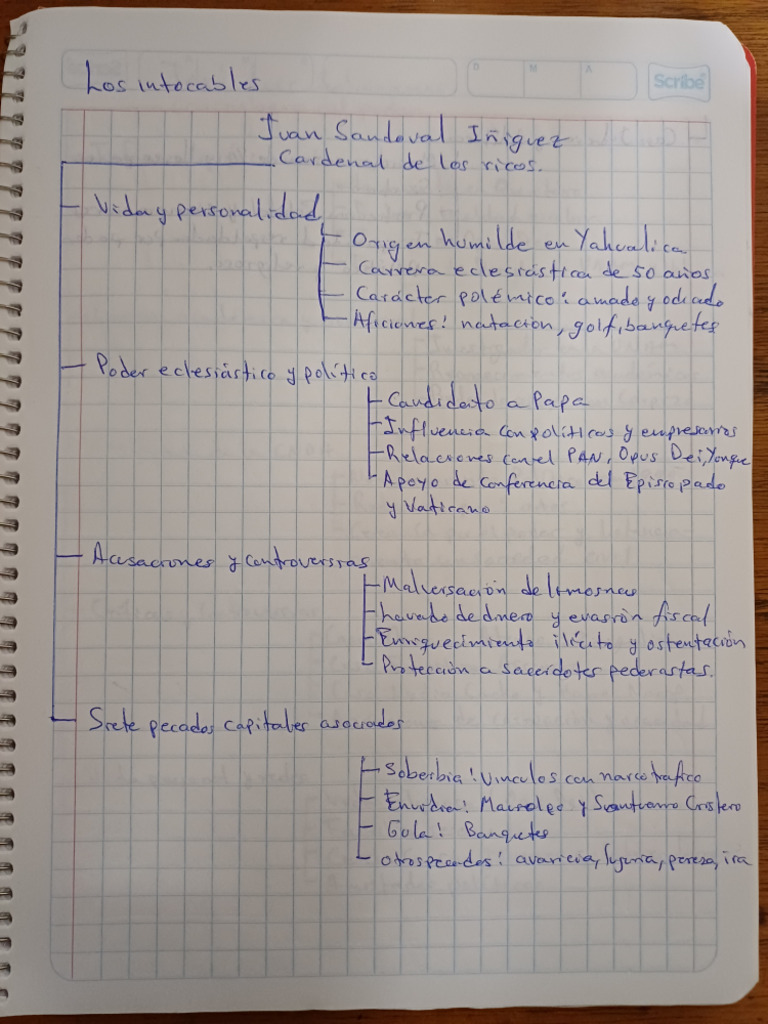 Los intocables
D M A
Scribe
Juan Sandoval Iñiguez
Cardenal de los ricos.
Vida y personalidad
Origen humilde en Yahualica
Carrera eclesiástica de 50 años
Carácter polémico: amado y odiado
Aficiones: natación, golf, banquetes
Poder eclesiástico y político
Candidato a Papa
Influencia con políticos y empresarios
Relaciones con el PAN, Opus Dei, Yunque
Apoyo de Conferencia del Episcopado
y Vaticano
Acusaciones y controversias
Malversación de limosnas
Lavado de dinero y evasión fiscal
Enriquecimiento ilícito y ostentación
Protección a sacerdotes pederastas.
Siete pecados capitales asociados
Soberbia: vinculos con narcotrafico
Envidia: Mausoleo y Santuario Cristero
Gula: Banquetes
Otros pecados: avaricia, lujuria, pereza, ira